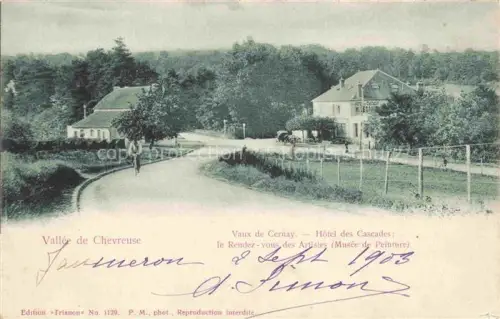 Vallée de Chevreuse
Vaux de Cernay. — Hôtel des Cascades;
le Rendez-vous des Artistes (Musée de Peinture)
2 Sept 1903
A. Simon
Edition "Trianon" No 1139. P. M., phot., Reproduction interdite